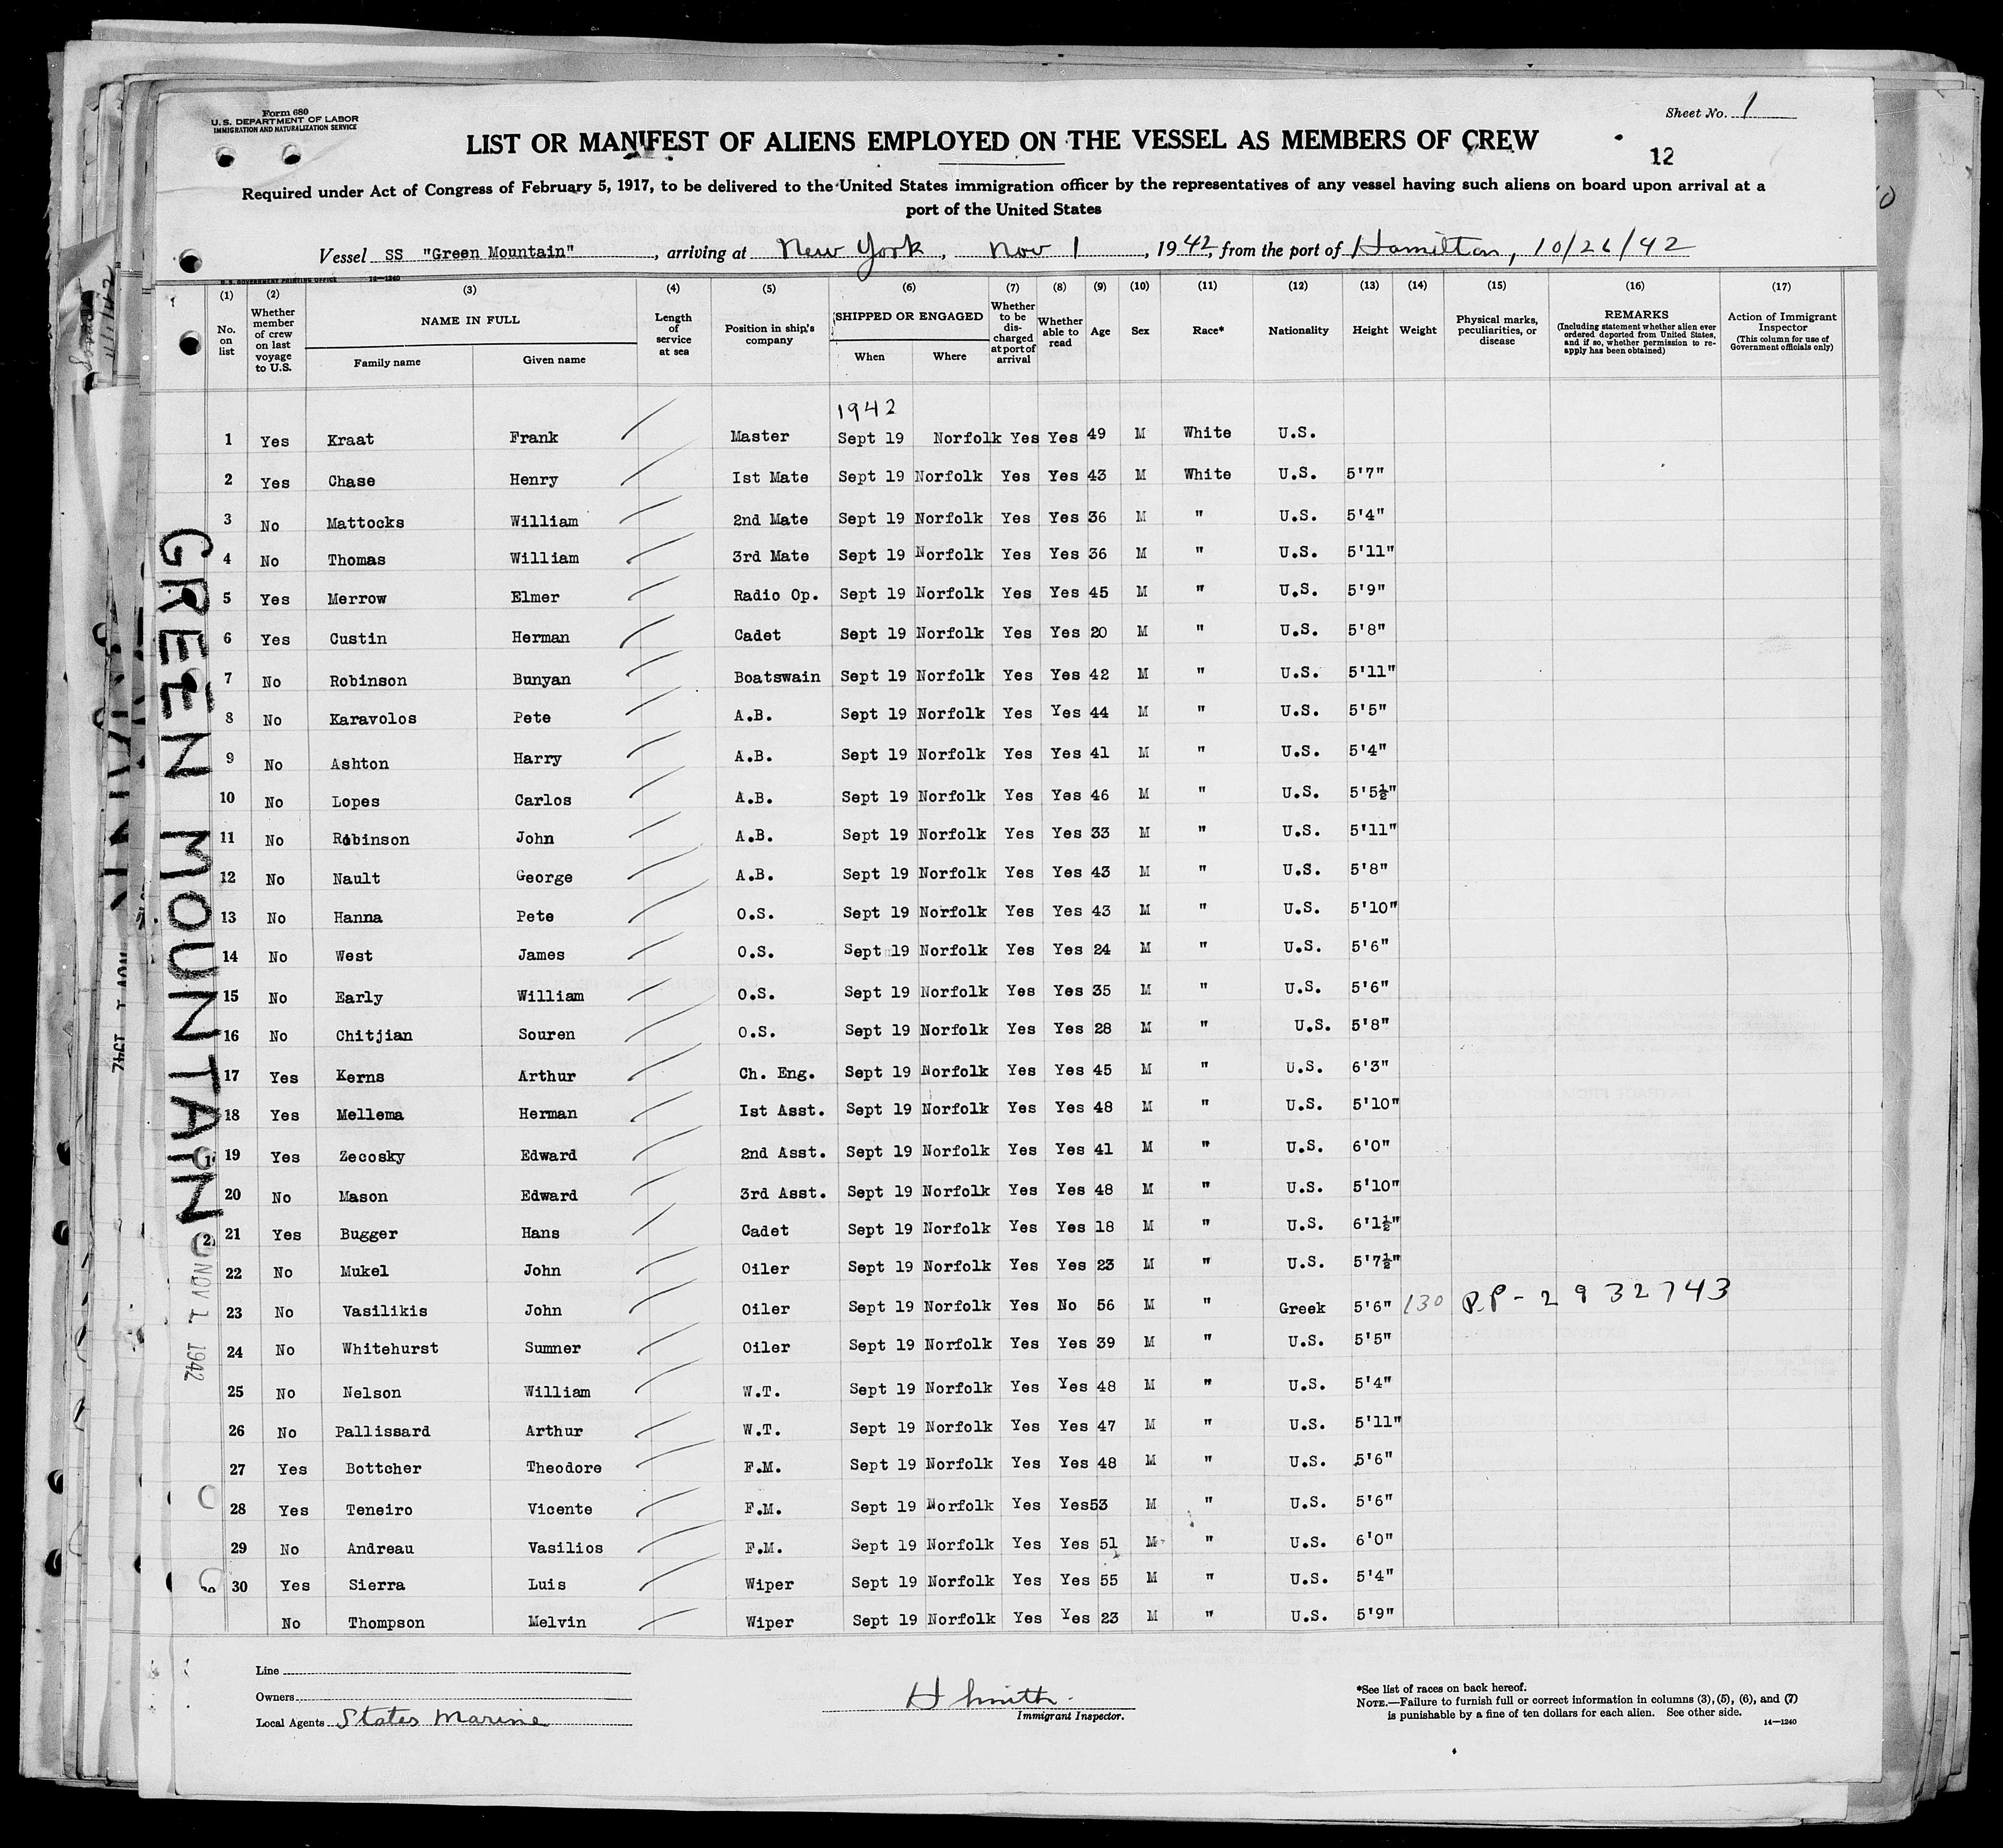 Form 680
U. S. DEPARTMENT OF LABOR
IMMIGRATION AND NATURALIZATION SERVICE
Sheet No. 1
LIST OR MANIFEST OF ALIENS EMPLOYED ON THE VESSEL AS MEMBERS OF CREW
12
Required under Act of Congress of February 5, 1917, to be delivered to the United States immigration officer by the representatives of any vessel having such aliens on board upon arrival at a
port of the United States
Vessel SS "Green Mountain", arriving at New York, Nov 1, 1942, from the port of Hamilton, 10/26/42
U. S. GOVERNMENT PRINTING OFFICE 14—1240
(1) No. on list
(2) Whether member of crew on last voyage to U.S.
(3) NAME IN FULL Family name Given name
(4) Length of service at sea
(5) Position in ship's company
(6) SHIPPED OR ENGAGED When Where
(7) Whether to be discharged at port of arrival
(8) Whether able to read
(9) Age
(10) Sex
(11) Race*
(12) Nationality
(13) Height
(14) Weight
(15) Physical marks, peculiarities, or disease
(16) REMARKS (Including statement whether alien ever ordered deported from United States, and if so, whether permission to reapply has been obtained)
(17) Action of Immigrant Inspector (This column for use of Government officials only)
1942
1 Yes Kraat Frank Master Sept 19 Norfolk Yes Yes 49 M White U.S.
2 Yes Chase Henry Ist Mate Sept 19 Norfolk Yes Yes 43 M White U.S. 5'7"
3 No Mattocks William 2nd Mate Sept 19 Norfolk Yes Yes 36 M " U.S. 5'4"
4 No Thomas William 3rd Mate Sept 19 Norfolk Yes Yes 36 M " U.S. 5'11"
5 Yes Merrow Elmer Radio Op. Sept 19 Norfolk Yes Yes 45 M " U.S. 5'9"
6 Yes Custin Herman Cadet Sept 19 Norfolk Yes Yes 20 M " U.S. 5'8"
7 No Robinson Bunyan Boatswain Sept 19 Norfolk Yes Yes 42 M " U.S. 5'11"
8 No Karavolos Pete A.B. Sept 19 Norfolk Yes Yes 44 M " U.S. 5'5"
9 No Ashton Harry A.B. Sept 19 Norfolk Yes Yes 41 M " U.S. 5'4"
10 No Lopes Carlos A.B. Sept 19 Norfolk Yes Yes 46 M " U.S. 5'5½"
11 No Robinson John A.B. Sept 19 Norfolk Yes Yes 33 M " U.S. 5'11"
12 No Nault George A.B. Sept 19 Norfolk Yes Yes 43 M " U.S. 5'8"
13 No Hanna Pete O.S. Sept 19 Norfolk Yes Yes 43 M " U.S. 5'10"
14 No West James O.S. Sept 19 Norfolk Yes Yes 24 M " U.S. 5'6"
15 No Early William O.S. Sept 19 Norfolk Yes Yes 35 M " U.S. 5'6"
16 No Chitjian Souren O.S. Sept 19 Norfolk Yes Yes 28 M " U.S. 5'8"
17 Yes Kerns Arthur Ch. Eng. Sept 19 Norfolk Yes Yes 45 M " U.S. 6'3"
18 Yes Mellema Herman Ist Asst. Sept 19 Norfolk Yes Yes 48 M " U.S. 5'10"
19 Yes Zecosky Edward 2nd Asst. Sept 19 Norfolk Yes Yes 41 M " U.S. 6'0"
20 No Mason Edward 3rd Asst. Sept 19 Norfolk Yes Yes 48 M " U.S. 5'10"
21 Yes Bugger Hans Cadet Sept 19 Norfolk Yes Yes 18 M " U.S. 6'1½"
22 No Mukel John Oiler Sept 19 Norfolk Yes Yes 23 M " U.S. 5'7½"
23 No Vasilikis John Oiler Sept 19 Norfolk Yes No 56 M " Greek 5'6" 130 P.P - 2932743
24 No Whitehurst Sumner Oiler Sept 19 Norfolk Yes Yes 39 M " U.S. 5'5"
25 No Nelson William W.T. Sept 19 Norfolk Yes Yes 48 M " U.S. 5'4"
26 No Pallissard Arthur W.T. Sept 19 Norfolk Yes Yes 47 M " U.S. 5'11"
27 Yes Bottcher Theodore F.M. Sept 19 Norfolk Yes Yes 48 M " U.S. 5'6"
28 Yes Teneiro Vicente F.M. Sept 19 Norfolk Yes Yes 53 M " U.S. 5'6"
29 No Andreau Vasilios F.M. Sept 19 Norfolk Yes Yes 51 M " U.S. 6'0"
30 Yes Sierra Luis Wiper Sept 19 Norfolk Yes Yes 55 M " U.S. 5'4"
No Thompson Melvin Wiper Sept 19 Norfolk Yes Yes 23 M " U.S. 5'9"
GREEN MOUNTAIN
NOV 1 1942
Line
Owners
Local Agents States Marine
H Smith
Immigrant Inspector.
*See list of races on back hereof.
NOTE.—Failure to furnish full or correct information in columns (3), (5), (6), and (7)
is punishable by a fine of ten dollars for each alien. See other side.
14—1240